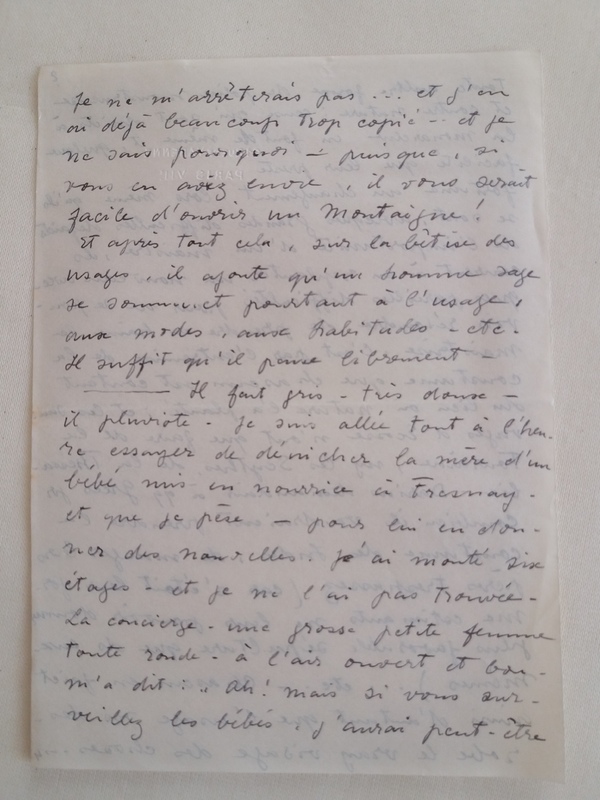 Je ne m'arrêterais pas ... et j'en
ai déjà beaucoup trop copié - et je
ne sais pourquoi - puisque, si
vous en avez envie, il vous serait
facile d'ouvrir un Montaigne !
Et après tout cela, sur la bêtise des
usages, il ajoute qu'un homme sage
se soumet pourtant à l'usage,
aux modes, aux habitudes - etc.
Il suffit qu'il pense librement -
Il fait gris - très doux -
il pluviote - Je suis allée tout à l'heu-
re essayer de dénicher la mère d'un
bébé mis en nourrice à Fresnay -
et que je pèse - pour lui en don-
ner des nouvelles. J'ai monté six
étages - et je ne l'ai pas trouvée -
La concierge - une grosse petite femme
toute ronde - à l'air ouvert et bon -
m'a dit : " Ah ! mais si vous sur-
veillez les bébés, j'aurai peut-être